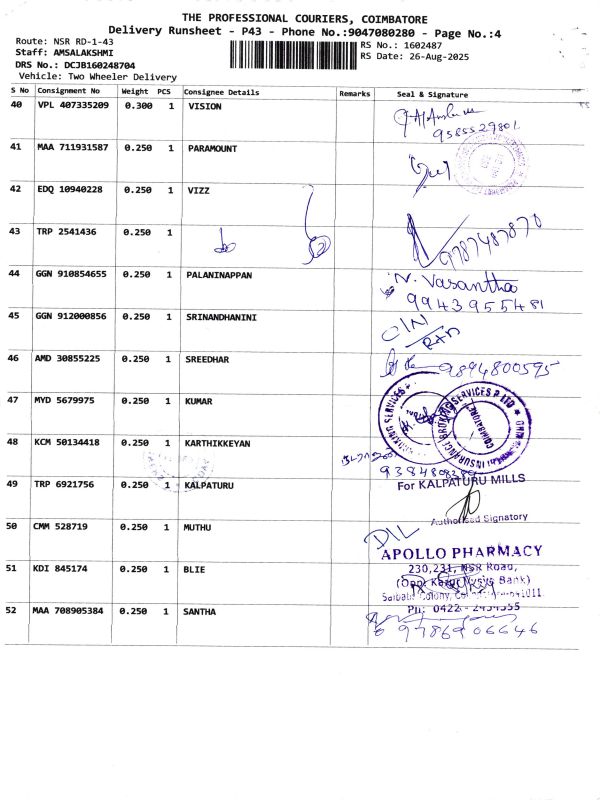 THE PROFESSIONAL COURIERS, COIMBATORE
Delivery Runsheet - P43 - Phone No.:9047080280 - Page No.:4
Route: NSR RD-1-43
RS No.: 1602487
Staff: AMSALAKSHMI
RS Date: 26-Aug-2025
DRS No.: DCJB160248704
Vehicle: Two Wheeler Delivery
S No Consignment No Weight PCS Consignee Details Remarks Seal & Signature
40 VPL 407335209 0.300 1 VISION
9585529801
41 MAA 711931587 0.250 1 PARAMOUNT
42 EDQ 10940228 0.250 1 VIZZ
43 TRP 2541436 0.250 1
9787487870
44 GGN 910854655 0.250 1 PALANINAPPAN
N. Vasantha
9943955481
45 GGN 912000856 0.250 1 SRINANDHANINI
46 AMD 30855225 0.250 1 SREEDHAR
9894800595
47 MYD 5679975 0.250 1 KUMAR
48 KCM 50134418 0.250 1 KARTHIKKEYAN
49 TRP 6921756 0.250 1 KALPATURU
For KALPATURU MILLS
Authorised Signatory
50 CMM 528719 0.250 1 MUTHU
D/L
APOLLO PHARMACY
51 KDI 845174 0.250 1 BLIE
230,231, NSR Road,
(Opp. Karur Vysya Bank)
Saibaba Colony,
Ph: 0422 -
52 MAA 708905384 0.250 1 SANTHA
9786906646